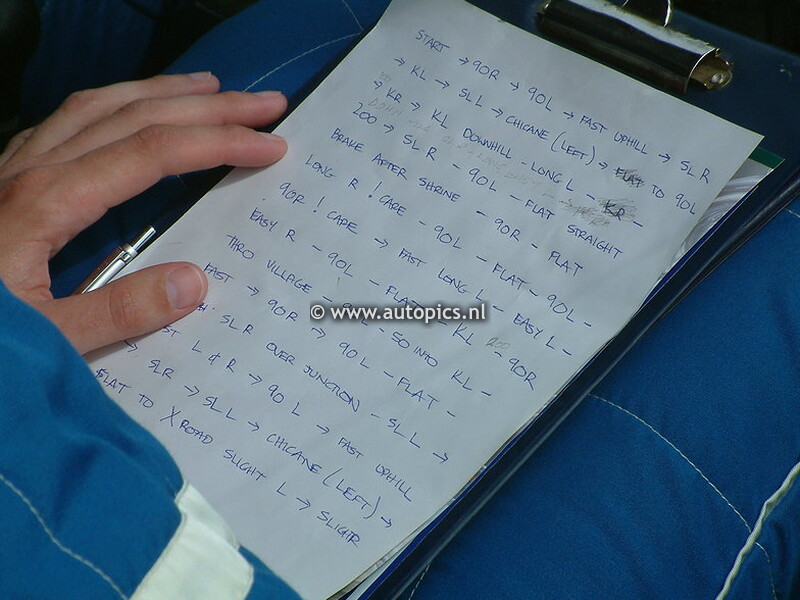 START → 90R → 90L → FAST UPHILL → SLR
→ KL → SLL → CHICANE (LEFT) → FLAT TO 90L
→ KR → KL DOWNHILL - LONG L - KR -
200 → SLR - 90L - FLAT STRAIGHT
BRAKE AFTER SHRINE - 90R - FLAT
LONG R ! CARE - 90L - FLAT - 90L -
90R ! CARE → FAST LONG L - EASY L -
EASY R - 90L - FLAT - KL 200 - 90R
THRO VILLAGE - 90L - SO INTO KL -
FAST → 90R → 90L - FLAT -
SLR OVER JUNCTION - SLL →
L & R → 90L → FAST UPHILL
→ SLR → SLL → CHICANE (LEFT) →
FLAT TO X ROAD SLIGHT L → SLIGTR
© www.autopics.nl